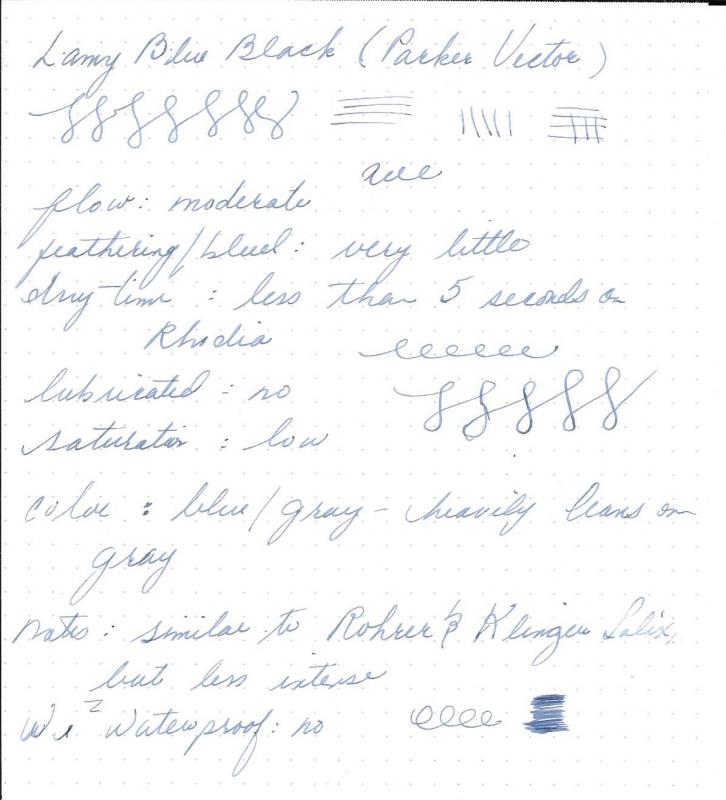 Lamy Blue Black (Parker Vector)
flow: moderate
feathering/bleed: very little
dry-time : less than 5 seconds on
Rhodia
lubricated - no
saturation : low
color : blue/gray - heavily leans on
gray
notes: similar to Rohrer & Klinger Salix,
but less intense
waterproof: no